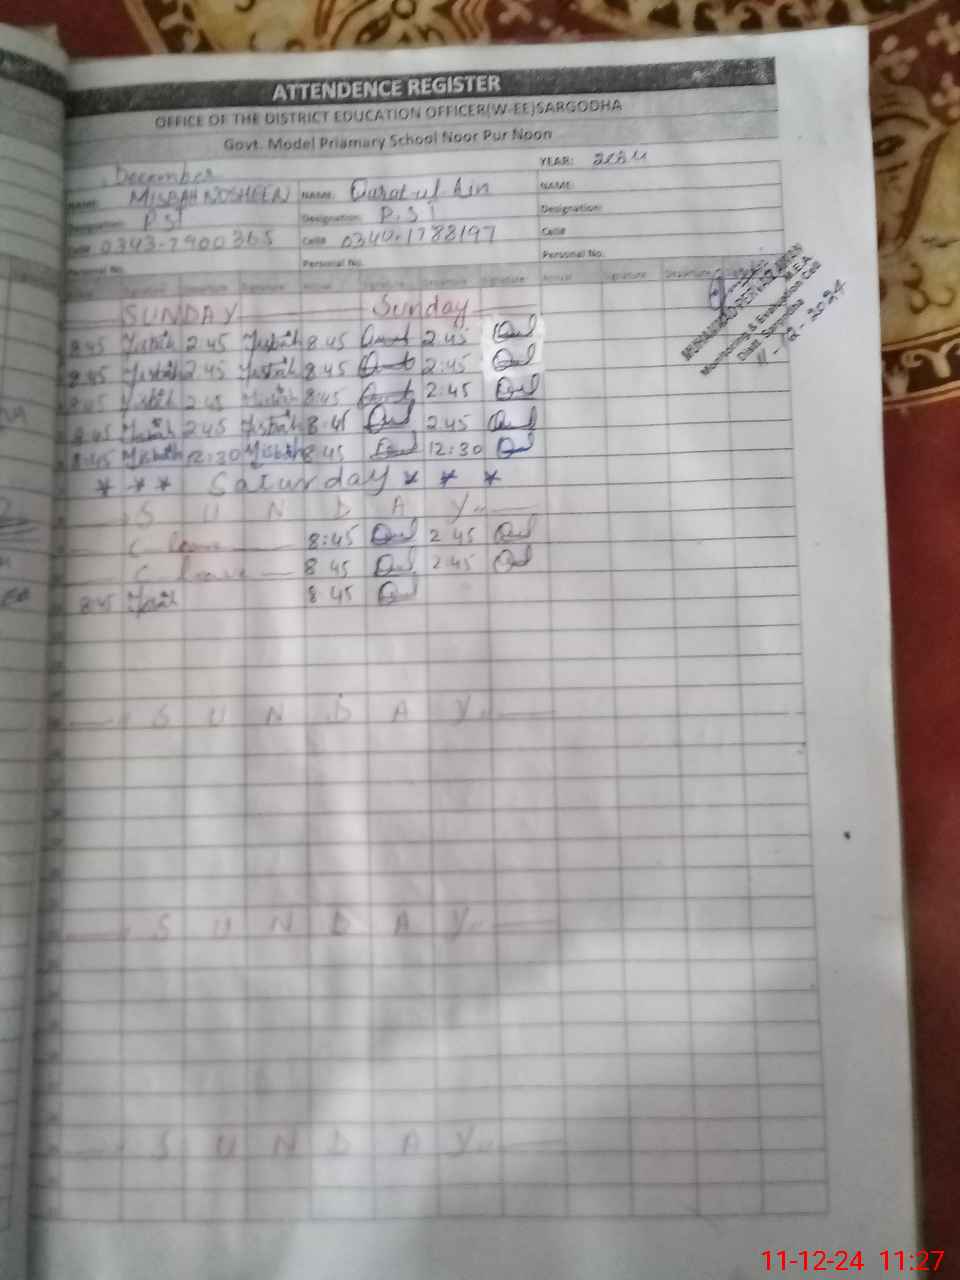 ATTENDENCE REGISTER
OFFICE OF THE DISTRICT EDUCATION OFFICER(W-EE)SARGODHA
Govt. Model Priamary School Noor Pur Noon
December YEAR: 2024
NAME: MISBAH NOSHEEN NAME: Qurat ul Ain NAME:
Designation: P.S.T Designation: P.S.T Designation:
Cell# 0343-7900365 Cell# 0340-1788197 Cell#
Personal No. Personal No. Personal No.
Arrival Signature Departure
SUNDAY Sunday
8:45 Misbah 2:45 Misbah 8:45 2:45
8:45 Misbah 2:45 Misbah 8:45 2:45
8:45 Misbah 2:45 Misbah 8:45 2:45
8:45 Misbah 2:45 Misbah 8:45 2:45
8:45 Misbah 12:30 Misbah 8:45 12:30
* * * Saturday * * *
S U N D A Y
C leave 8:45 2:45
C leave 8:45 2:45
8:45 Misbah 8:45
S U N D A Y
S U N D A Y
S U N D A Y
M.E.A
Monitoring & Evaluation Cell
Distt. Sargodha
11-12-2024
11-12-24 11:27